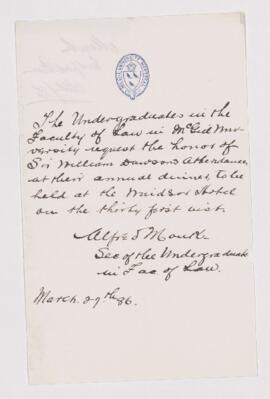 The Undergraduates in the
Faculty of Law in McGill Uni-
versity request the honor of
Sir William Dawsons Attendance
at their annual dinner, to be
held at the Windsor Hotel
on the thirty first inst.
Alfred Monk
Sec of the Undergraduate
in Fac of Law.
March. 29th 86.